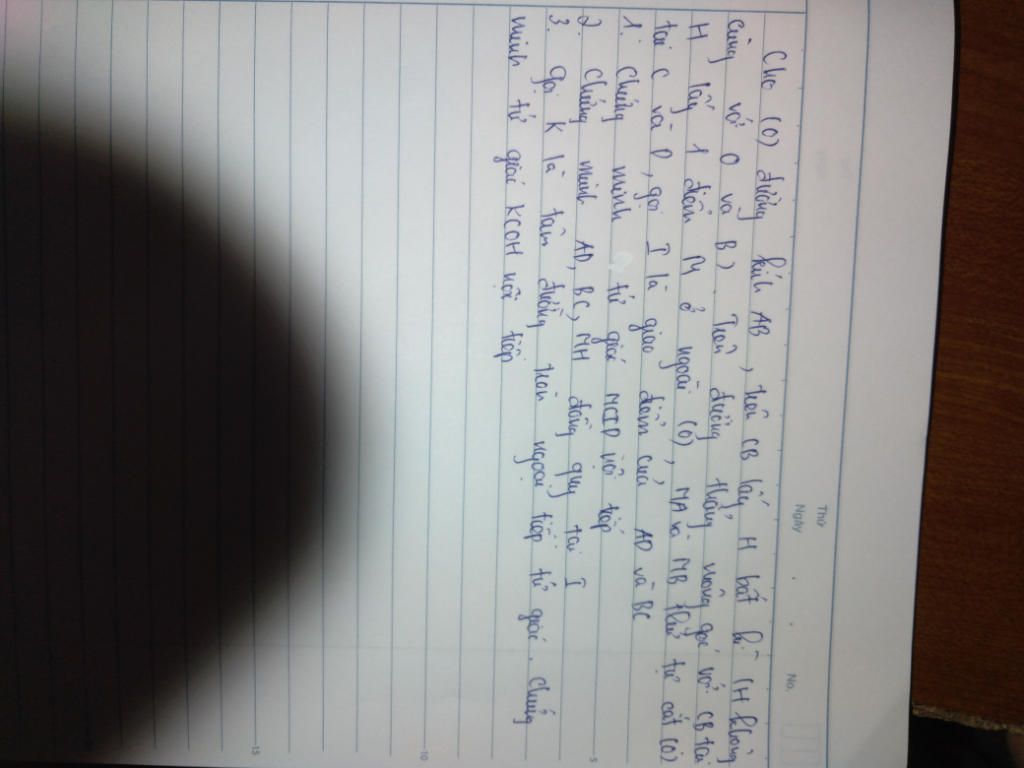 Thứ
Ngày
No.
Cho (O) đường kính AB, trên OB lấy H bất kì (H không
cùng với O và B). Trên đường thẳng vuông góc với OB tại
H lấy 1 điểm M ở ngoài (O), MA và MB thứ tự cắt (O)
tại C và D, gọi I là giao điểm của AD và BC
1. Chứng minh tứ giác MCID nội tiếp
2. Chứng minh AD, BC, MH đồng quy tại I
3. gọi K là tâm đường tròn ngoại tiếp tứ giác. Chứng
minh tứ giác KCOH nội tiếp
5
10
15